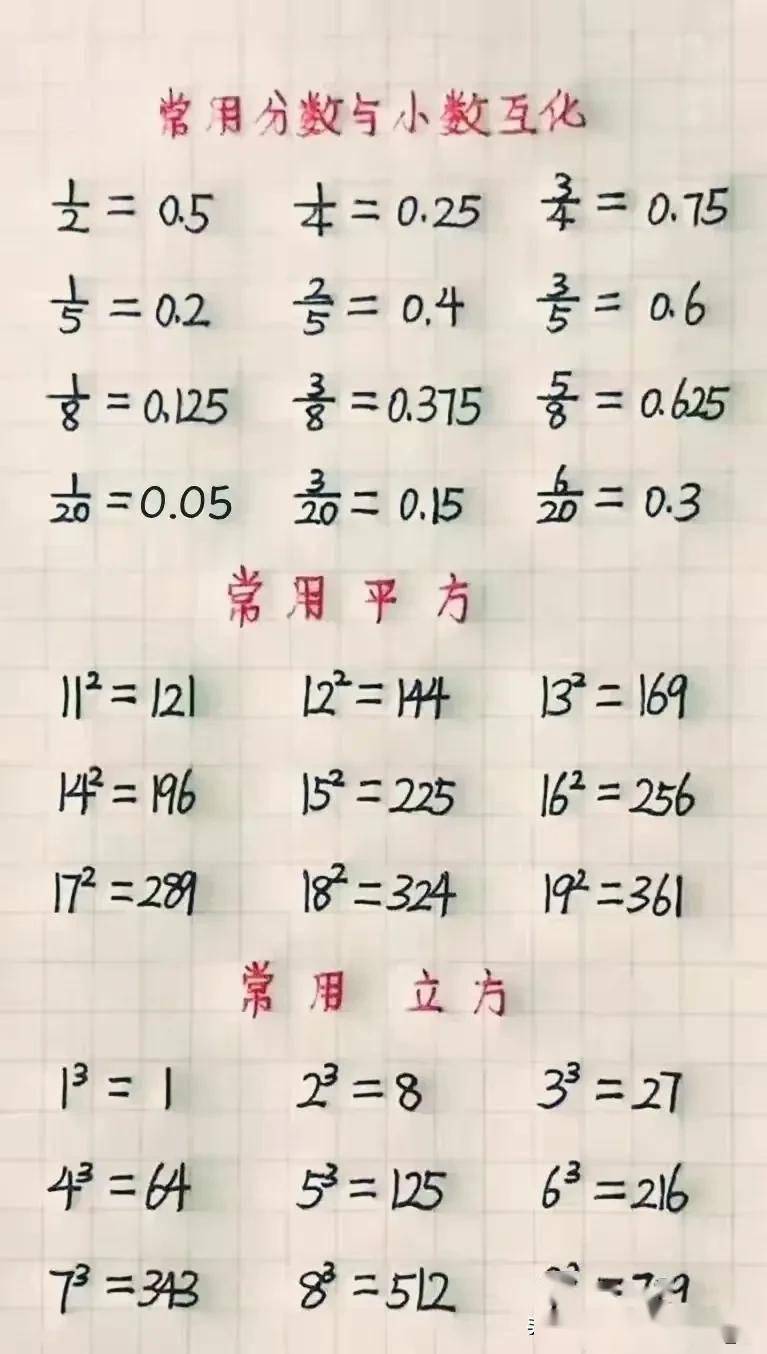 常用分数与小数互化
1/2 = 0.5 1/4 = 0.25 3/4 = 0.75
1/5 = 0.2 2/5 = 0.4 3/5 = 0.6
1/8 = 0.125 3/8 = 0.375 5/8 = 0.625
1/20 = 0.05 3/20 = 0.15 6/20 = 0.3
常用平方
11² = 121 12² = 144 13² = 169
14² = 196 15² = 225 16² = 256
17² = 289 18² = 324 19² = 361
常用 立方
1³ = 1 2³ = 8 3³ = 27
4³ = 64 5³ = 125 6³ = 216
7³ = 343 8³ = 512